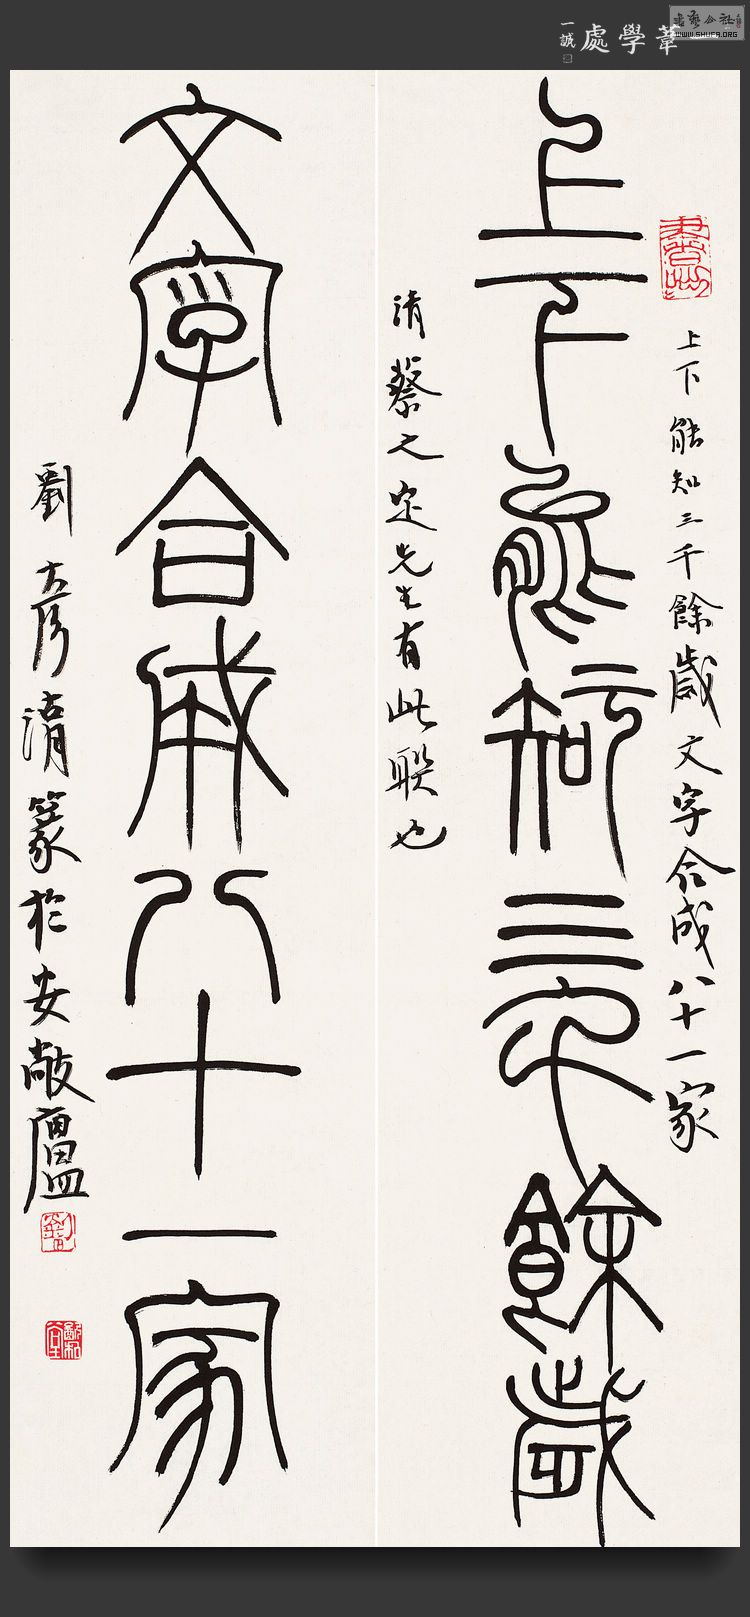 一葦學處
一誠
書艺公社
WWW.SHUFA.ORG
上下能知三千餘歲
上下能知三千餘歲文字合成八十一家
清蔡之定先生有此聯也
文字合成八十一家
劉彥湖篆於安敞廬